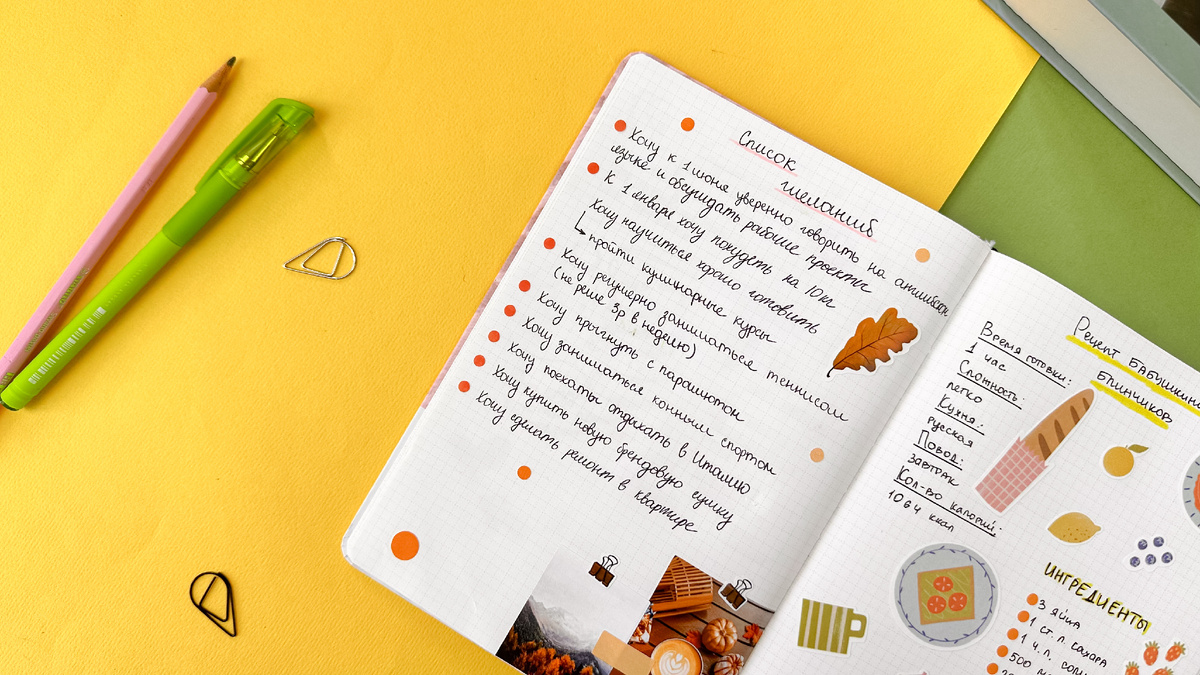 Список
желаний
Хочу к 1 июня уверенно говорить на английском
языке и обсуждать рабочие проекты
К 1 января хочу похудеть на 10 кг
Хочу научиться хорошо готовить
пройти кулинарные курсы
Хочу регулярно заниматься теннисом
(не реже 3р в неделю)
Хочу прыгнуть с парашютом
Хочу заниматься конным спортом
Хочу поехать отдыхать в Италию
Хочу купить новую брендовую сумку
Хочу сделать ремонт в квартире
Рецепт бабушкиных
блинчиков
Время готовки:
1 час
Сложность:
легко
Кухня:
русская
Повод:
завтрак
Кол-во калорий:
1064 ккал
ИНГРЕДИЕНТЫ
3 яйца
1 ст. л. сахара
1 ч. л. соли
500 м